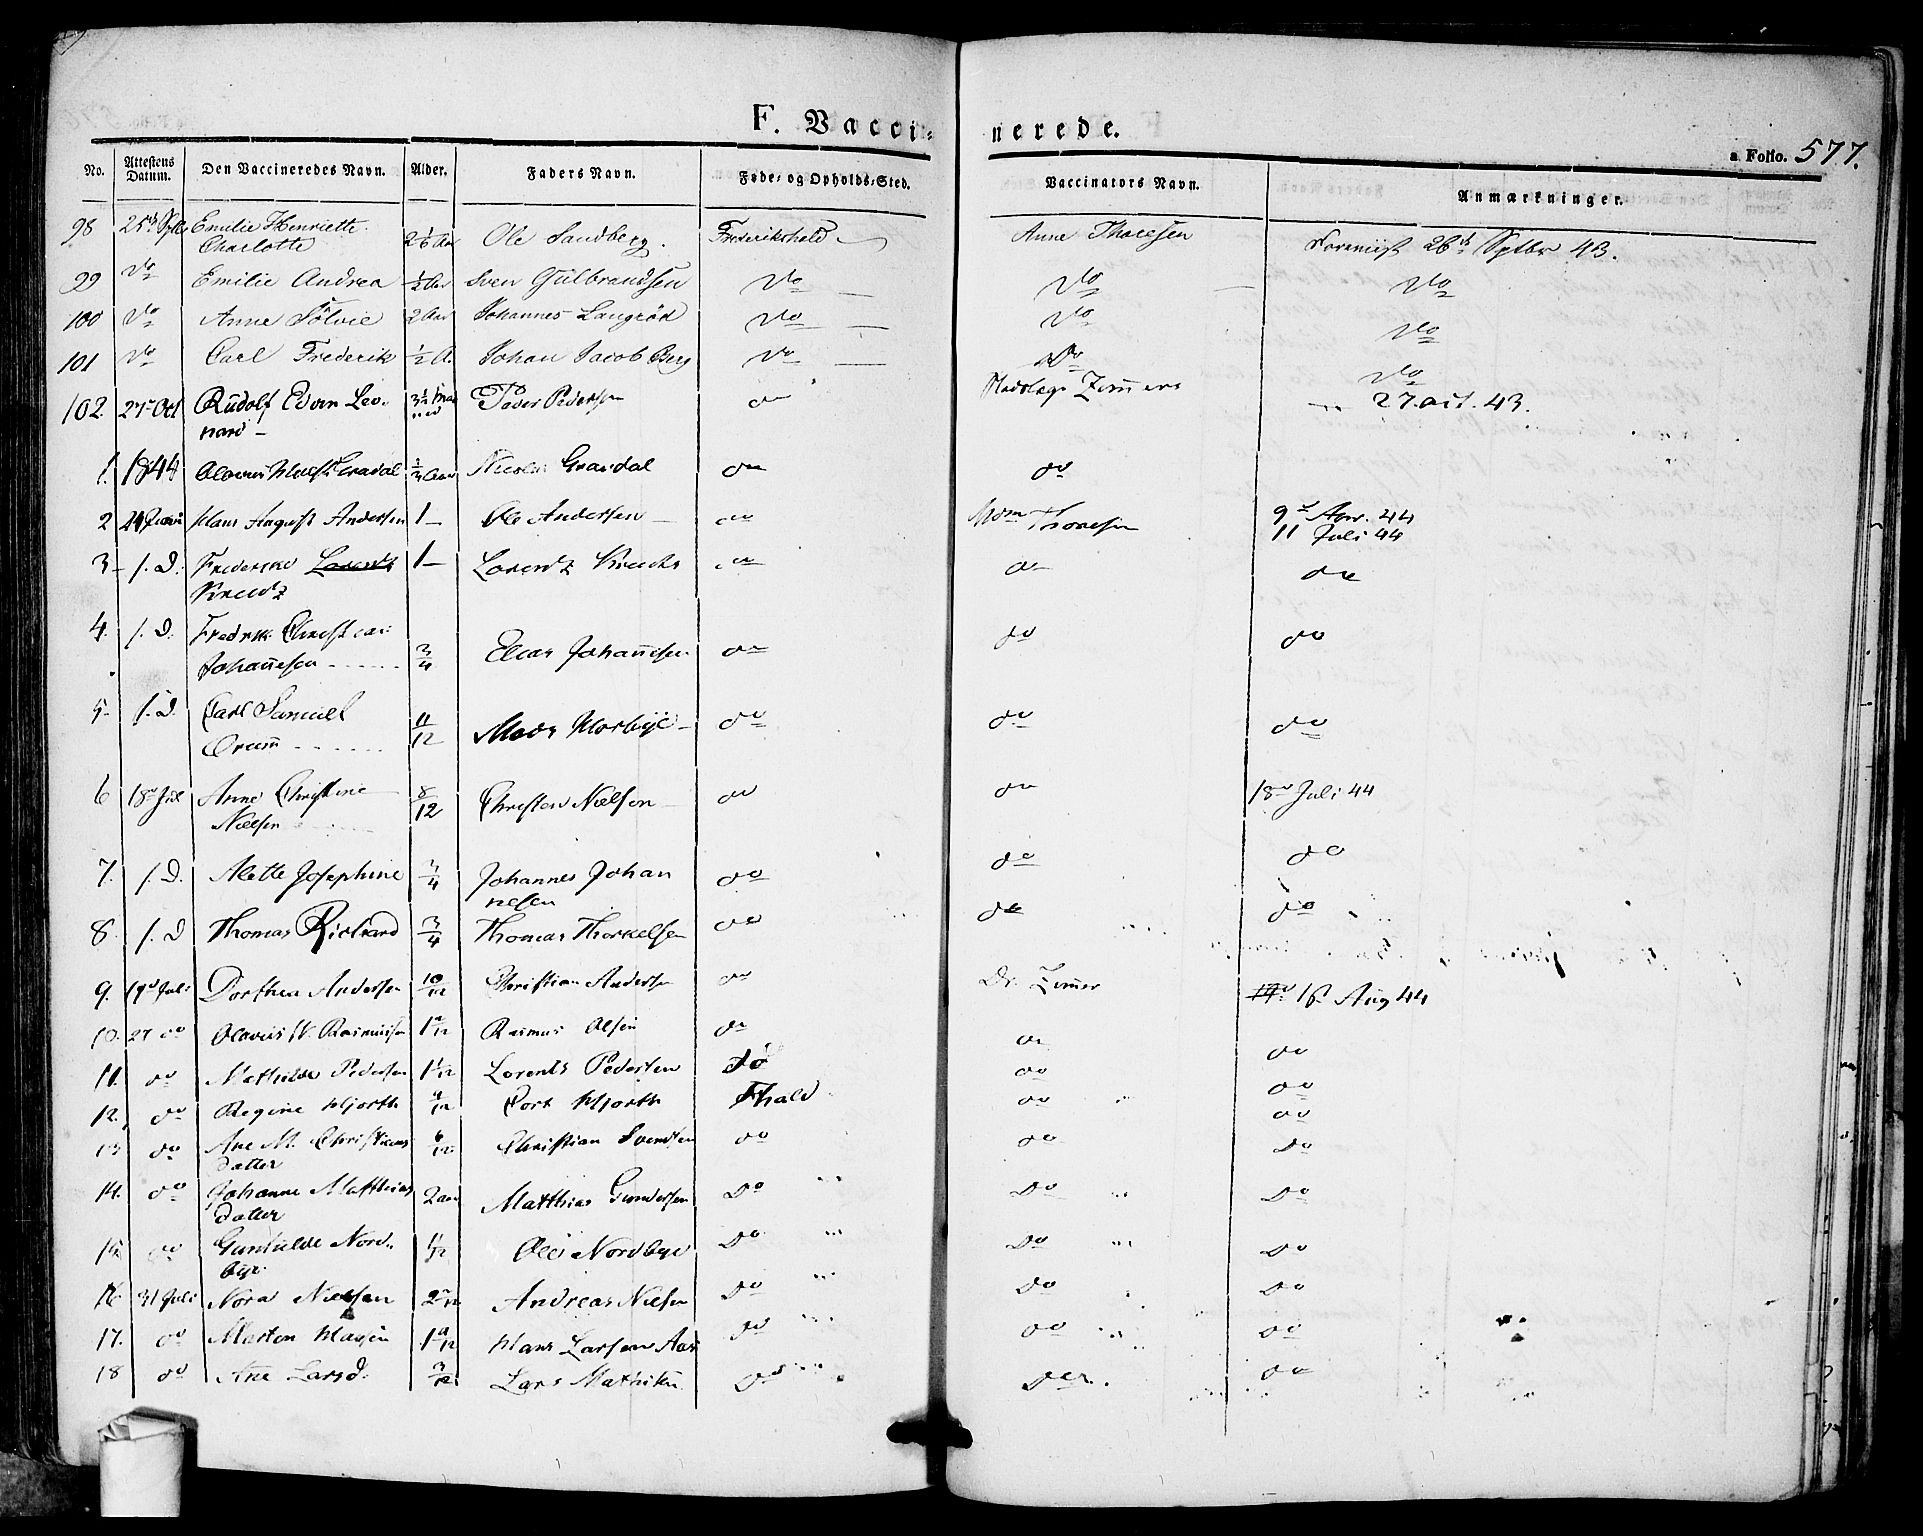 F. Vacci- nerede.
a Folio. 577.
No. Attestens Datum. Den Vaccineredes Navn. Alder. Faders Navn. Føde- og Opholds-Sted. Vaccinators Navn. Anmærkninger.
98 25de Sptbr Emilie Henriette Charlotte 2 1/6 Aar Ole Sandberg. Frederikshald Anne Thoresen Foreviist 26de Sptbr 43.
99 Do Emilie Andrea 1/2 Aar Sven Gulbrandsen Do Do Do
100 Do Anne Sölvie 2 Aar Johannes Langröd Do Do Do
101 Do Carl Frederik 1/2 A. Johan Jacob Berg Do Do Do
102. 27 Oct Rudolf Edvin Leo- nard 3 1/2 Maaned Peder Pedersen do Stadslæge Zimmer 27. oct. 43.
1. 1844 Gravdal 2/3 Aar Nicolai Gravdal do do
2 29 Juni Hans August Andersen 1 Ole Andersen do Mdm Thoresen 9de Apr. 44
11 Juli 44
3 s. D. Frederike Lorentz 1 Lorentz do do do
4. s. D. Fredrik Christian Johannesen 3/4 Elias Johannesen do do do
5. s. D. Carl Samuel Orum 11/12 Mads Morbye do do do
6 18 Jul Anne Christine Nielsen 8/12 Christen Nielsen do do 18de Juli 44
7. s. D. Mette Josephine 3/4 Johannes Johan nesen do do do
8. s. D Thomas Richard 3/4 Thomas Thorkelsen do do do
9. 19de Juli Dorthea Andersen 10/12 Christian Andersen do Dr. Zimmer 19de 16 Aug 44
10. 27 do Olavus Rasmussen 1 Rasmus Olsen do do do
11. do Mathilde Pedersen 1 1/12 Lorents Pedersen do do do
12. do Regine Hjorth 9/12 Cort Hjorth Fhald do do
13 do Ane M. Christians datter 6/12 Christian Svendsen do do do
14. do Johanne Matthias datter 2 aar Matthias Gundersen do do do
15. do Gunhilde Nord- bye 1/12 Ole Nordbye do do do
16 31 Juli Nora Nielsen 2 Andreas Nielsen do do do
17. do Morten Hansen 1 9/12 Hans Larsen Aas do do do
18 do Ane Larsd. 3/12 Lars Mathisen do do do